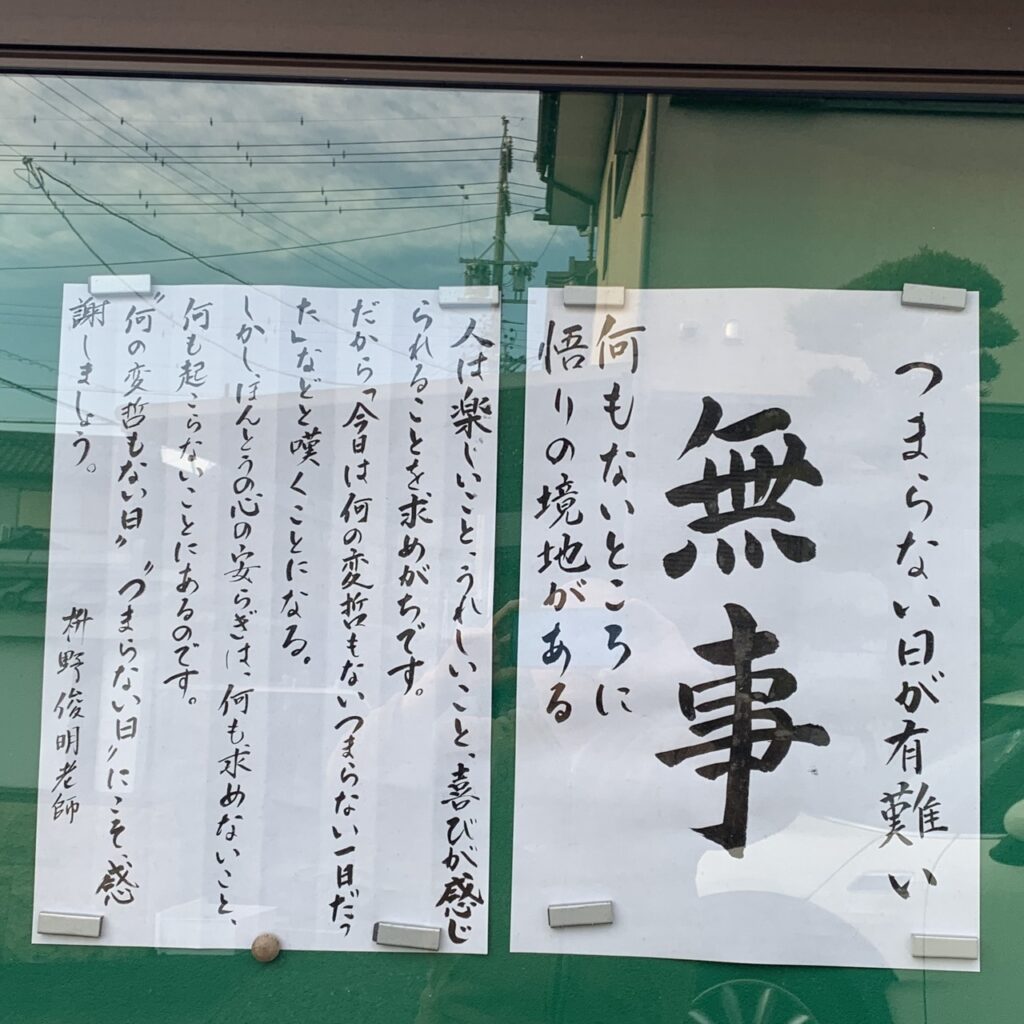 つまらない日が有難い
無事
何もないところに
悟りの境地がある
人は楽しいこと、うれしいこと、喜びが感じ
られることを求めがちです。
だから「今日は何の変哲もないつまらない一日だっ
た」などと嘆くことになる。
しかし、ほんとうの心の安らぎは、何も求めないこと、
何も起こらないことにあるのです。
〝何の変哲もない日〟〝つまらない日〟にこそ、感
謝しましょう。
枡野俊明老師